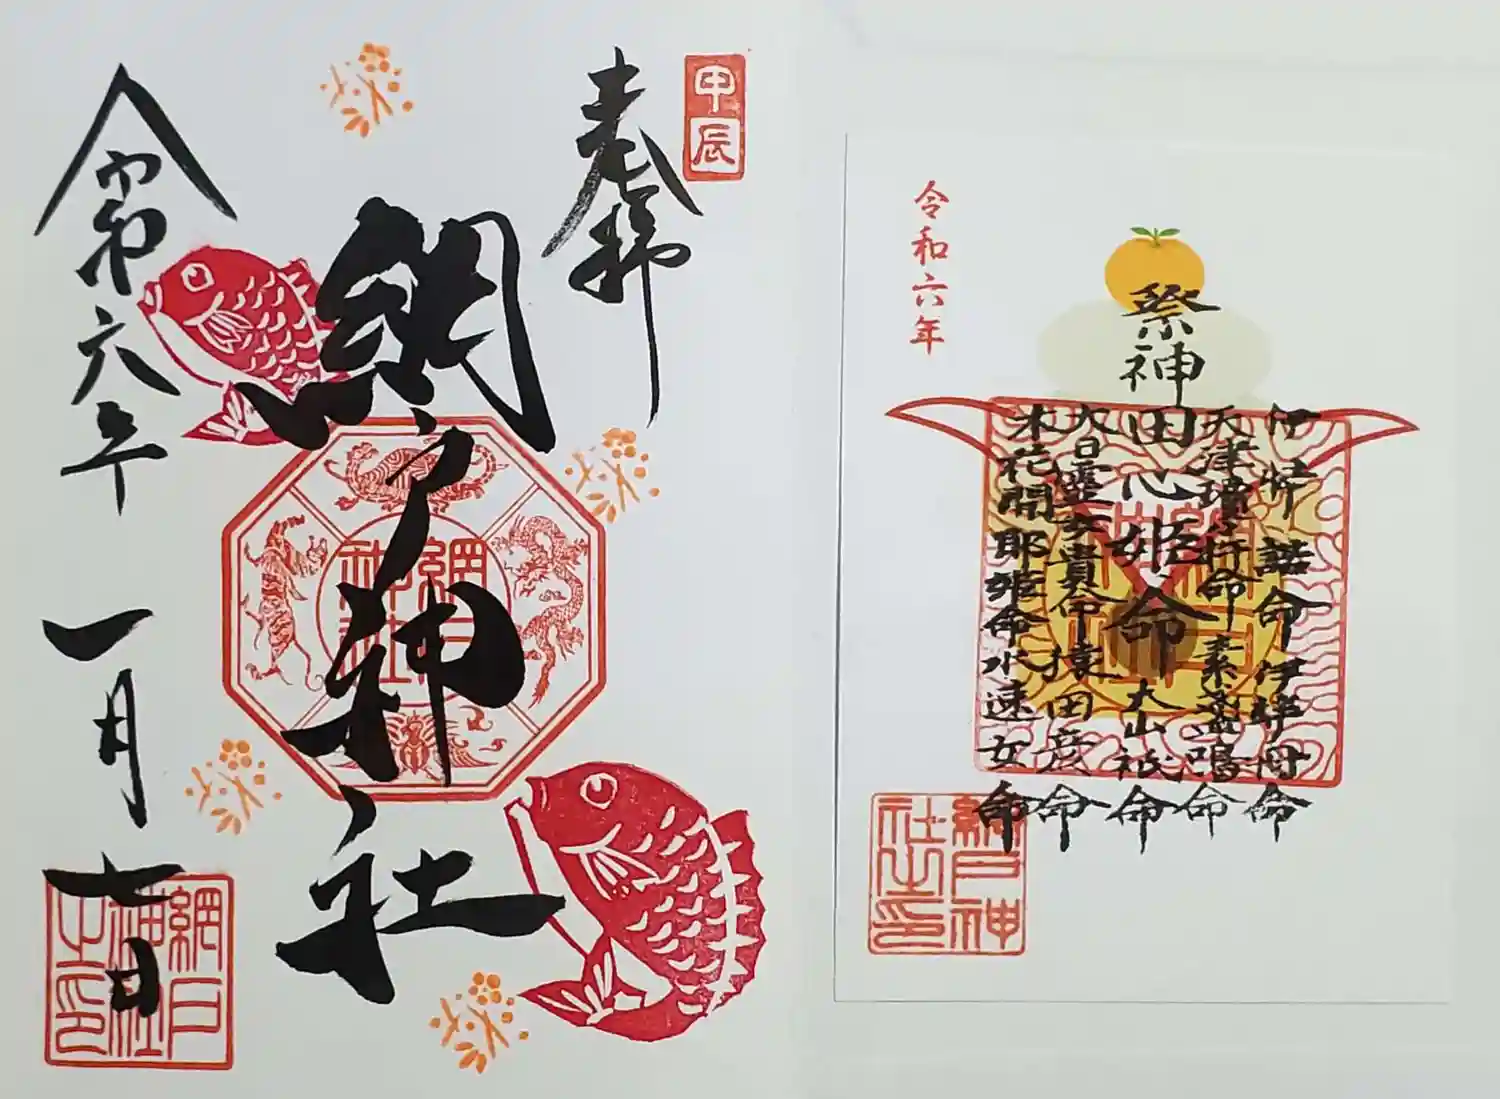 甲辰
奉拝
網戸神社
網戸神社
令和六年 一月七日
網戸神社之印
伊弉諾命 伊弉冊命
天津瓊々杵命 素盞鳴命
祭神 田心姫命 大山祇命
大日孁貴命 猿田彦命
木花開耶姫命 水速女命
令和六年
網戸神社之印